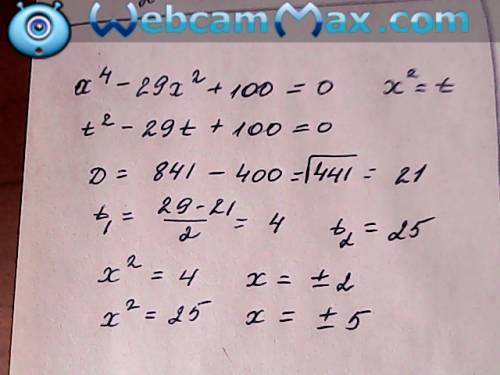 WebcamMax.com
x⁴ - 29x² + 100 = 0 x² = t
t² - 29t + 100 = 0
D = 841 - 400 = √441 = 21
t₁ = (29 - 21)/2 = 4 t₂ = 25
x² = 4 x = ± 2
x² = 25 x = ± 5